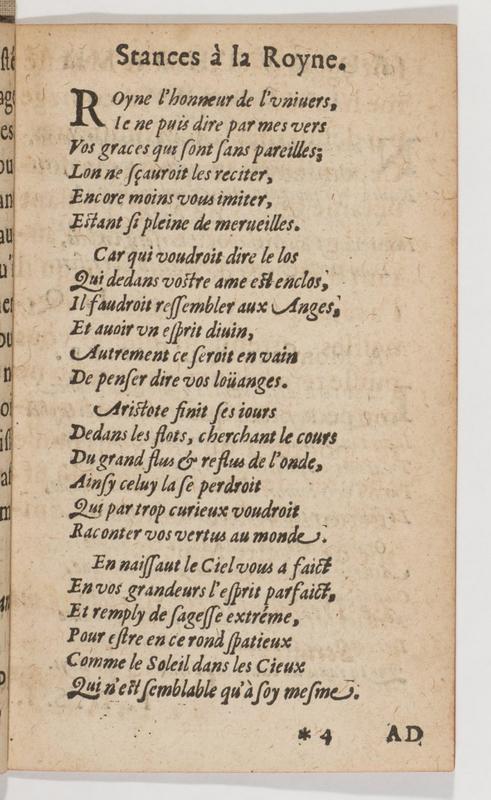 Stances à la Royne.
ROyne l'honneur de l'vniuers,
Ie ne puis dire par mes vers
Vos graces qui ſont ſans pareilles;
Lon ne ſçauroit les reciter,
Encore moins vous imiter,
Eſtant ſi pleine de merueilles.
Car qui voudroit dire le los
Qui dedans voſtre ame eſt enclos,
Il faudroit reſſembler aux Anges,
Et auoir vn eſprit diuin,
Autrement ce ſeroit en vain
De penſer dire vos loüanges.
Ariſtote finit ſes iours
Dedans les flots, cherchant le cours
Du grand flus & reflus de l'onde,
Ainſy celuy la ſe perdroit
Qui par trop curieux voudroit
Raconter vos vertus au monde.
En naiſſaut le Ciel vous a faict
En vos grandeurs l'eſprit parfaict,
Et remply de ſageſſe extréme,
Pour eſtre en ce rond ſpatieux
Comme le Soleil dans les Cieux
Qui n'eſt ſemblable qu'à ſoy meſme.
* 4 AD